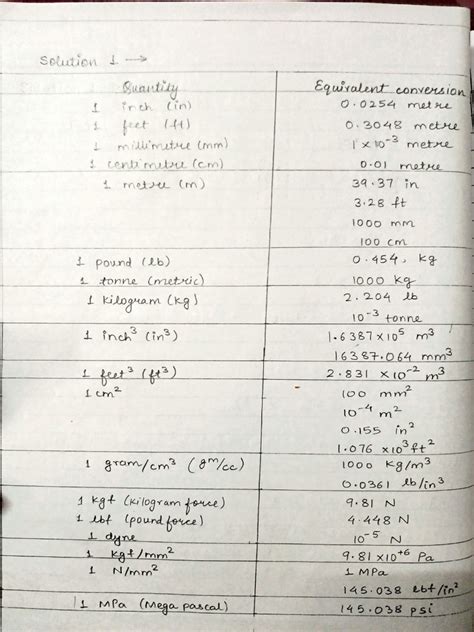 Solution 1 →
Quantity Equivalent conversion
1 inch (in) 0.0254 metre
1 feet (ft) 0.3048 metre
1 millimetre (mm) 1 × 10⁻³ metre
1 centimetre (cm) 0.01 metre
1 metre (m) 39.37 in
3.28 ft
1000 mm
100 cm
1 pound (lb) 0.454, kg
1 tonne (metric) 1000 kg
1 kilogram (kg) 2.204 lb
10⁻³ tonne
1 inch³ (in³) 1.6387×10⁵ m³
16387.064 mm³
1 feet³ (ft³) 2.831 ×10⁻² m³
1 cm² 100 mm²
10⁻⁴ m²
0.155 in²
1.076 ×10³ ft²
1 gram/cm³ (gm/cc) 1000 kg/m³
0.0361 lb/in³
1 kgf (kilogram force) 9.81 N
1 lbf (pound force) 4.448 N
1 dyne 10⁻⁵ N
1 kgf/mm² 9.81 ×10⁺⁶ Pa
1 N/mm² 1 MPa
145.038 lbf/in²
1 MPa (Mega pascal) 145.038 psi